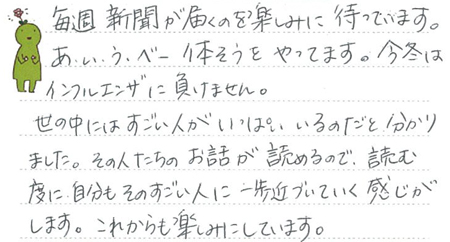 毎週 新聞が届くのを楽しみに 待っています。
あ、い、う、べー 体そうを やってます。今冬は
インフルエンザに 負けません。
世の中には すごい人が いっぱい いるのだと 分かり
ました。その人たちの お話が 読めるので、読む
度に 自分も そのすごい人に 一歩近づいていく 感じが
します。これからも 楽しみにしています。